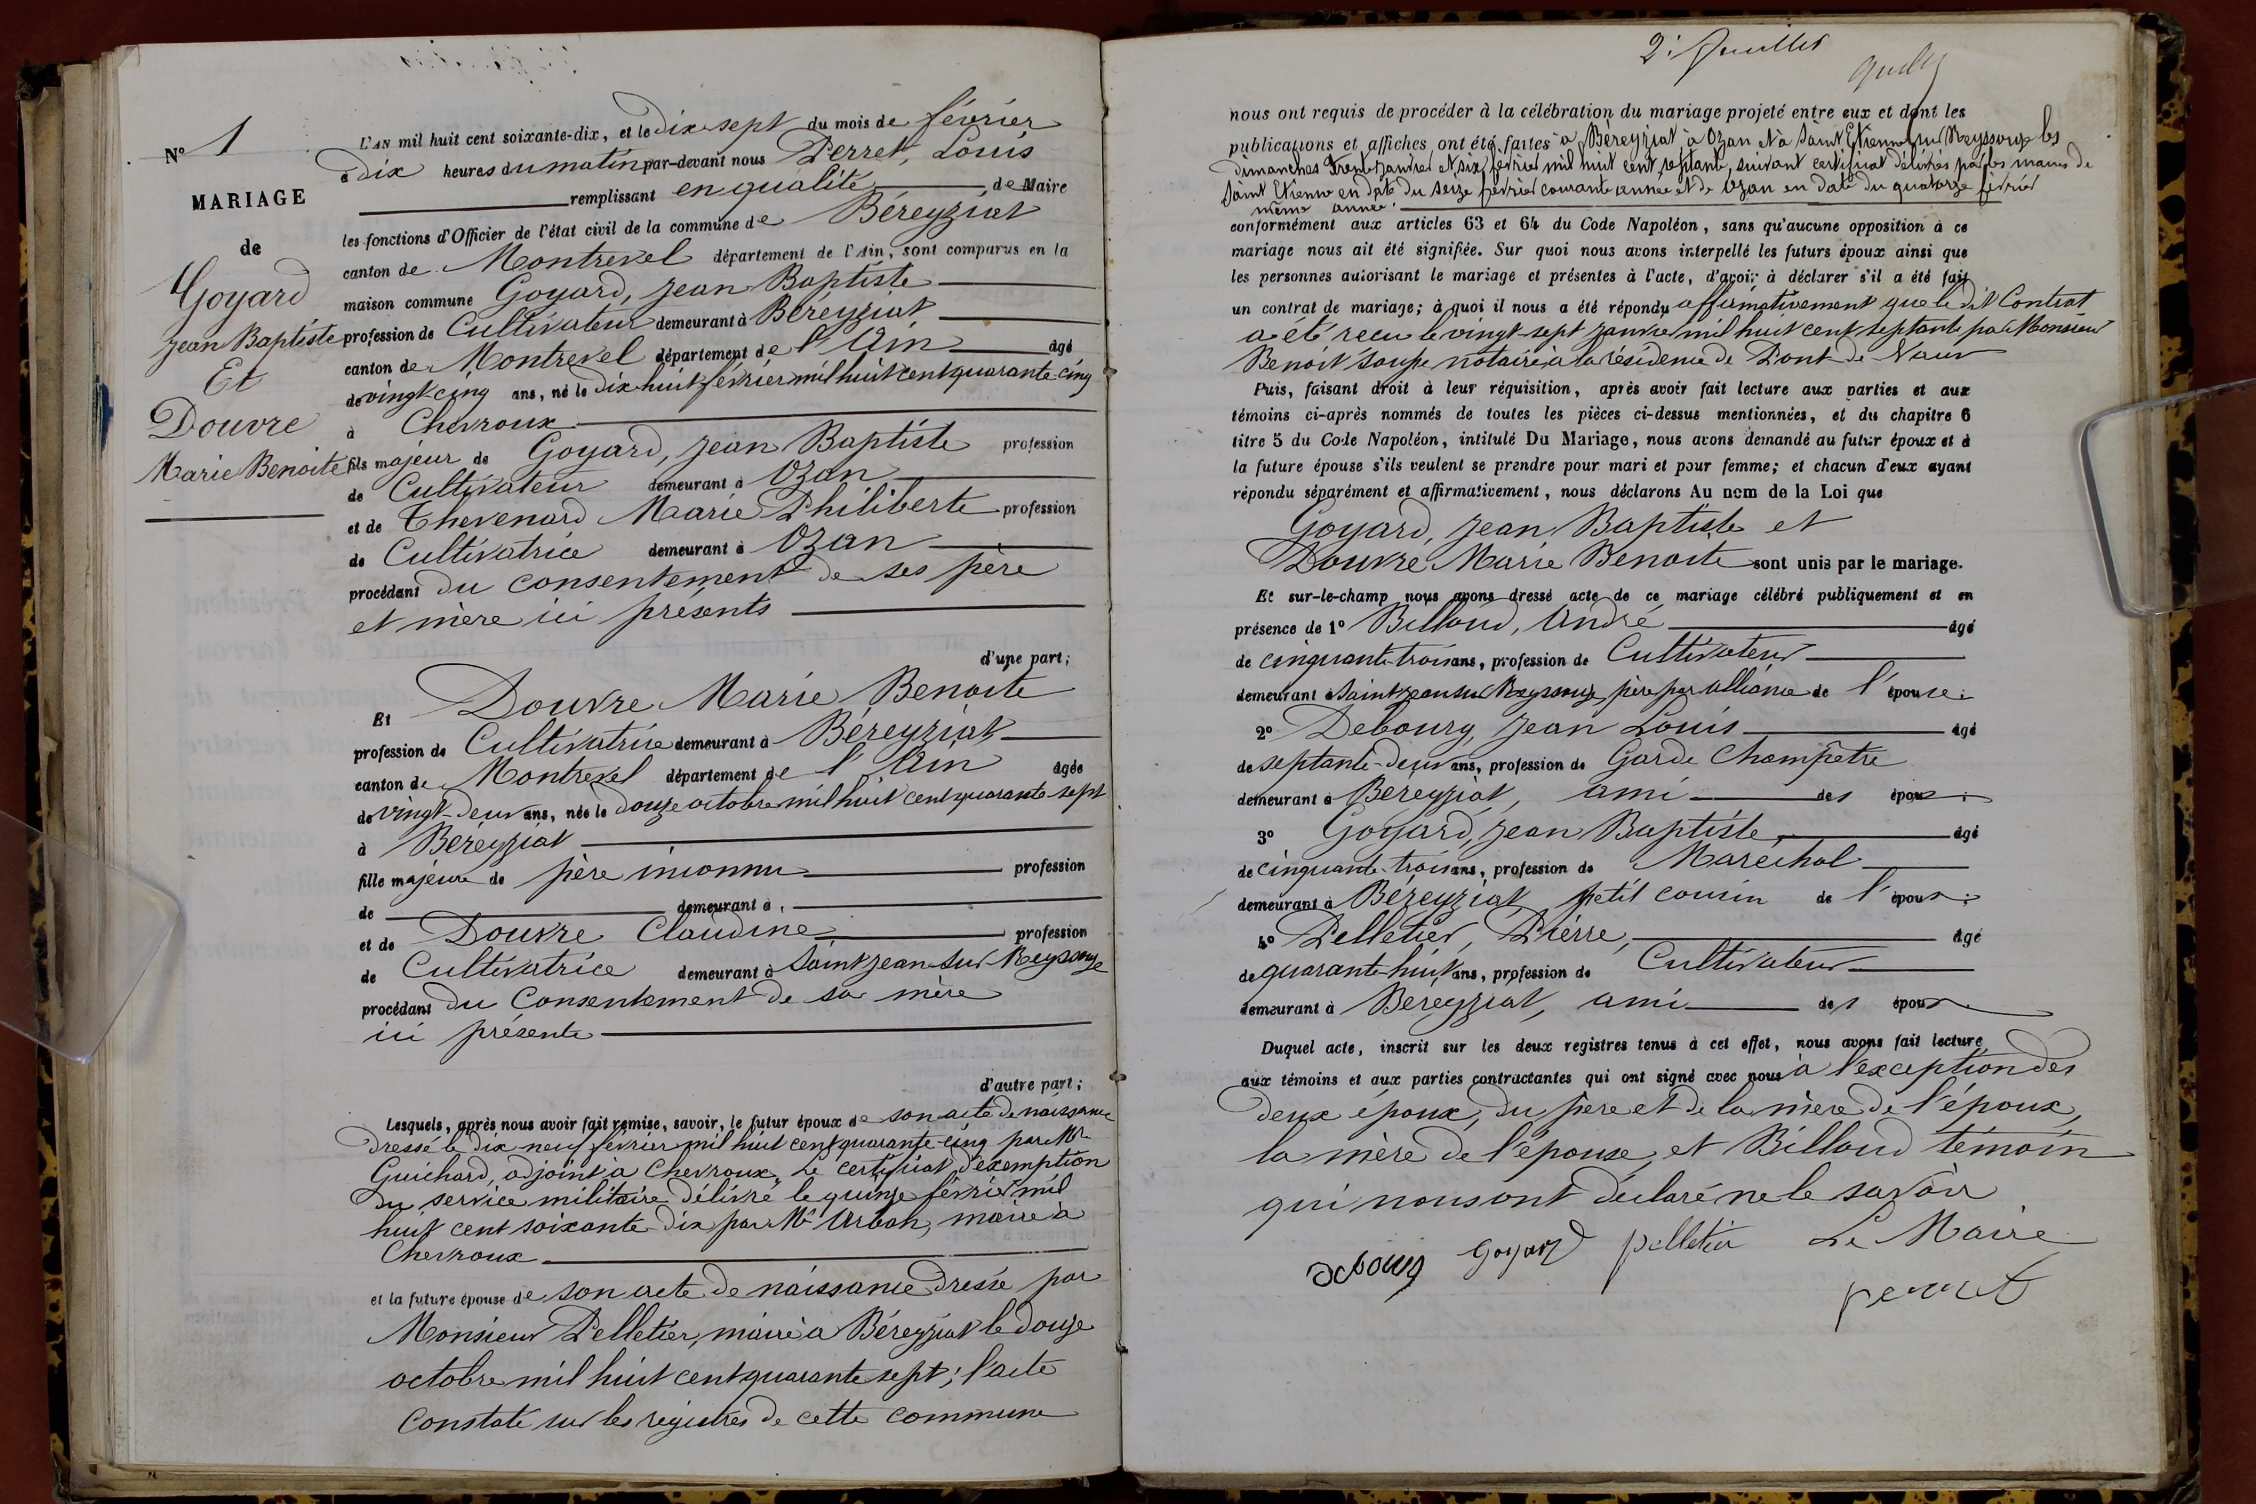 N° 1
MARIAGE
de
Goyard
Jean Baptiste
Et
Douvre
Marie Benoite
L'AN mil huit cent soixante-dix, et le dix sept du mois de février
à dix heures du matin par-devant nous Perret, Louis
remplissant en qualité de Maire
les fonctions d'Officier de l'état civil de la commune de Béreyziat
canton de Montrevel département de l'Ain, sont comparus en la
maison commune Goyard, Jean Baptiste
profession de Cultivateur demeurant à Béreyziat
canton de Montrevel département de l'Ain âgé
de vingt-cinq ans, né le dix huit février mil huit cent quarante-cinq
à Chevroux
fils majeur de Goyard, Jean Baptiste profession
de Cultivateur demeurant à Ozan
et de Thevenard Marie Philiberte profession
de Cultivatrice demeurant à Ozan
procédant du consentement de ses père
et mère ici présents
d'une part;
Et Douvre Marie Benoite
profession de Cultivatrice demeurant à Béreyziat
canton de Montrevel département de l'Ain âgée
de vingt-deux ans, née le douze octobre mil huit cent quarante-sept
à Béreyziat
fille majeure de père inconnu profession
de demeurant à
et de Douvre Claudine profession
de Cultivatrice demeurant à Saint Jean sur Reyssouze
procédant du Consentement de sa mère
ici présente
d'autre part;
Lesquels, après nous avoir fait remise, savoir, le futur époux de son acte de naissance
dressé le dix-neuf février mil huit cent quarante-cinq par Mr
Guichard, adjoint à Chevroux, Le certificat d'exemption
du service militaire délivré le quinze février mil
huit cent soixante-dix par Mr Urbah, maire à
Chevroux
et la future épouse de son acte de naissance dressé par
Monsieur Pelletier, maire à Béreyziat le douze
octobre mil huit cent quarante sept; l'acte
constaté sur les registres de cette commune
2e feuillet
nous ont requis de procéder à la célébration du mariage projeté entre eux et dont les
publications et affiches ont été faites à Béreyziat à Ozan et à Saint Etienne sur Reyssouze les
dimanches trente janvier et six février mil huit cent septante, suivant certificat délivrés par les maires de
Saint Etienne en date du seize février courante année et de Ozan en date du quatorze février
même année.
conformément aux articles 63 et 64 du Code Napoléon, sans qu'aucune opposition à ce
mariage nous ait été signifiée. Sur quoi nous avons interpellé les futurs époux ainsi que
les personnes autorisant le mariage et présentes à l'acte, d'avoir à déclarer s'il a été fait
un contrat de mariage; à quoi il nous a été répondu affirmativement que le dit Contrat
a été reçu le vingt-sept janvier mil huit cent septante par Monsieur
Benoit Soupe notaire à la résidence de Pont de Vaux
Puis, faisant droit à leur réquisition, après avoir fait lecture aux parties et aux
témoins ci-après nommés de toutes les pièces ci-dessus mentionnées, et du chapitre 6
titre 5 du Code Napoléon, intitulé Du Mariage, nous avons demandé au futur époux et à
la future épouse s'ils veulent se prendre pour mari et pour femme; et chacun d'eux ayant
répondu séparément et affirmativement, nous déclarons Au nom de la Loi que
Goyard, Jean Baptiste et
Douvre Marie Benoite sont unis par le mariage.
Et sur-le-champ nous avons dressé acte de ce mariage célébré publiquement et en
présence de 1° Billoud, André âgé
de cinquante-trois ans, profession de Cultivateur
demeurant à Saint Jean sur Reyssouze, père par alliance de l'épouse;
2° Debourg, Jean Louis âgé
de septante-deux ans, profession de Garde Champêtre
demeurant à Béreyziat, ami des époux;
3° Goyard, Jean Baptiste âgé
de cinquante-trois ans, profession de Maréchal
demeurant à Béreyziat petit cousin de l'époux;
4° Pelletier, Pierre, âgé
de quarante-huit ans, profession de Cultivateur
demeurant à Béreyziat, ami des époux
Duquel acte, inscrit sur les deux registres tenus à cet effet, nous avons fait lecture
aux témoins et aux parties contractantes qui ont signé avec nous à l'exception des
deux époux, du père et de la mère de l'époux,
la mère de l'épouse, et Billoud témoin
qui nous ont déclaré ne le savoir
Debourg Goyard pelletier Le Maire
perret